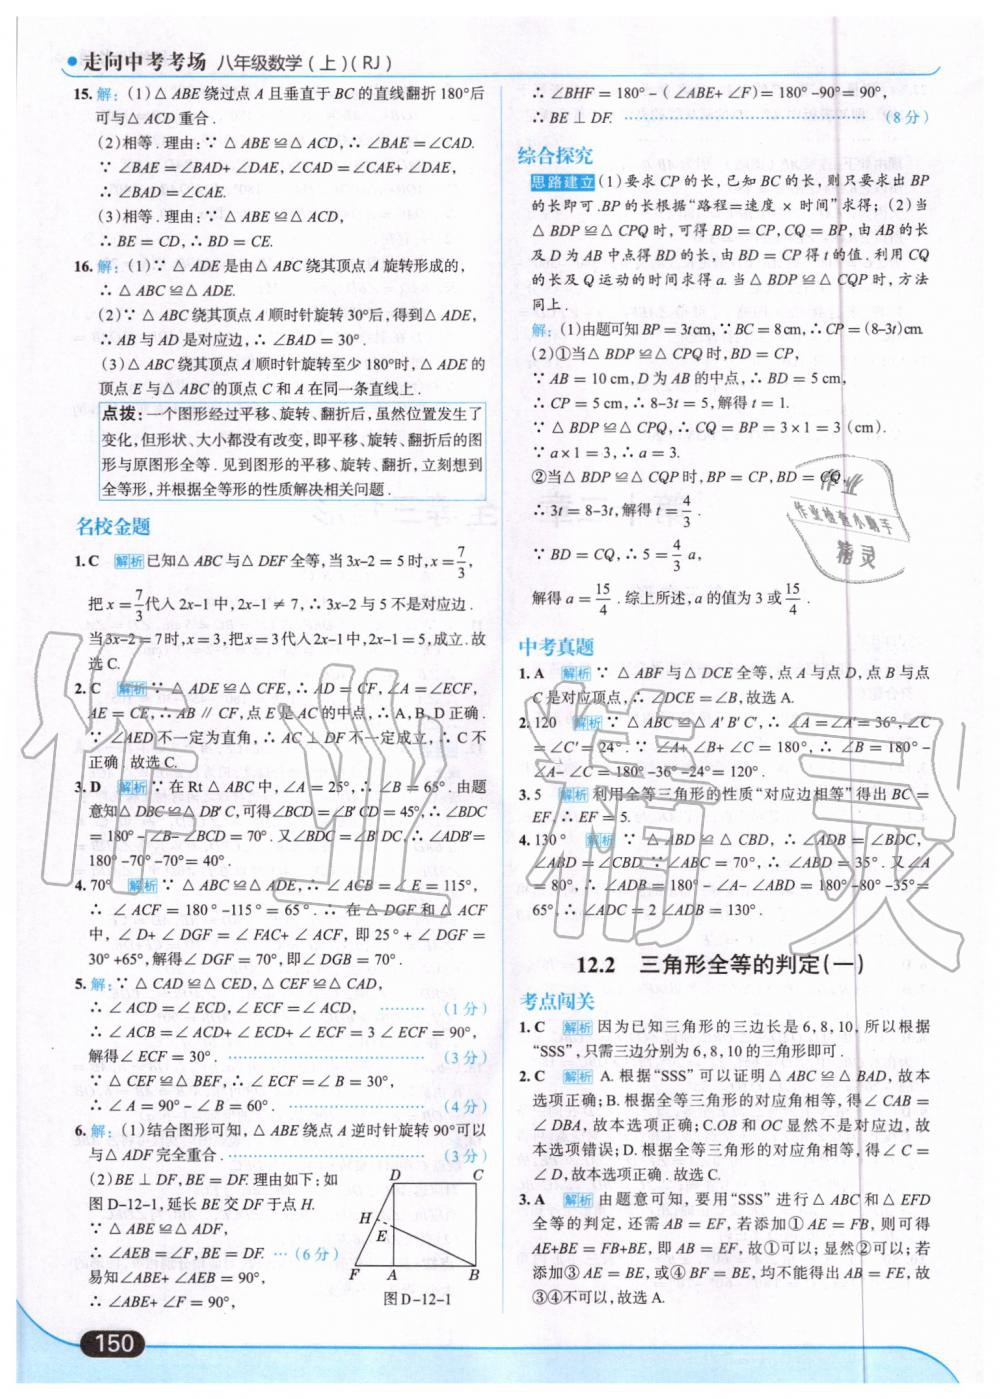 走向中考考场 八年级数学(上)(RJ)
15. 解:(1)△ ABE 绕过点 A 且垂直于 BC 的直线翻折 180°后
可与△ ACD 重合.
(2)相等. 理由:∵ △ ABE ≌△ ACD,∴ ∠BAE = ∠CAD.
∵ ∠BAE = ∠BAD+ ∠DAE,∠CAD = ∠CAE+ ∠DAE,
∴ ∠BAD = ∠CAE.
(3)相等. 理由:∵ △ ABE ≌△ ACD,
∴ BE = CD,∴ BD = CE.
16. 解:(1)∵ △ ADE 是由△ ABC 绕其顶点 A 旋转形成的,
∴ △ ABC ≌△ ADE.
(2)∵ △ ABC 绕其顶点 A 顺时针旋转 30°后,得到△ ADE,
∴ AB 与 AD 是对应边,∴ ∠BAD = 30°.
(3)△ ABC 绕其顶点 A 顺时针旋转至少 180°时,△ ADE 的
顶点 E 与△ ABC 的顶点 C 和 A 在同一条直线上.
点拨:一个图形经过平移、旋转、翻折后,虽然位置发生了
变化,但形状、大小都没有改变,即平移、旋转、翻折后的图
形与原图形全等. 见到图形的平移、旋转、翻折,立刻想到
全等形,并根据全等形的性质解决相关问题.
名校金题
1. C 解析 已知△ ABC 与△ DEF 全等,当 3x-2 = 5 时,x = 7/3,
把 x = 7/3 代入 2x-1 中,2x-1 ≠ 7,∴ 3x-2 与 5 不是对应边.
当 3x-2 = 7 时,x = 3,把 x = 3 代入 2x-1 中,2x-1 = 5,成立. 故
选 C.
2. C 解析 ∵ △ ADE ≌△ CFE,∴ AD = CF,∠A = ∠ECF,
AE = CE,∴ AB // CF,点 E 是 AC 的中点,∴ A,B,D 正确.
∵ ∠AED 不一定为直角,∴ AC ⊥ DF 不一定成立,∴ C 不
正确. 故选 C.
3. D 解析 ∵ 在 Rt △ ABC 中,∠A = 25°,∴ ∠B = 65°. 由题
意知△ DBC ≌△ DB′C,可得∠BCD = ∠B′CD = 45°,∴ ∠BDC
= 180° - ∠B- ∠BCD = 70°. 又∠BDC = ∠B′DC,∴ ∠ADB′=
180° -70° -70°= 40°.
4. 70° 解析 ∵ △ ABC ≌△ ADE,∴ ∠ ACB = ∠ E = 115°,
∴ ∠ ACF = 180° -115° = 65°. ∴ 在 △ DGF 和 △ ACF
中,∠ D+ ∠ DGF = ∠ FAC+ ∠ ACF,即 25° + ∠ DGF =
30° +65°,解得∠ DGF = 70°,即∠ DGB = 70°.
5. 解:∵ △ CAD ≌△ CED,△ CEF ≌△ CAD,
∴ ∠ ACD = ∠ ECD,∠ ECF = ∠ ACD, ……… (1 分)
∴ ∠ ACB = ∠ ACD+ ∠ ECD+ ∠ ECF = 3 ∠ ECF = 90°,
解得∠ ECF = 30°. ……………………… (3 分)
∵ △ CEF ≌△ BEF,∴ ∠ ECF = ∠ B = 30°,
∴ ∠ A = 90° - ∠ B = 60°. ……………… (4 分)
6. 解:(1)结合图形可知,△ ABE 绕点 A 逆时针旋转 90°可以
与△ ADF 完全重合. ……………………… (3 分)
(2)BE ⊥ DF,BE = DF. 理由如下:如
图 D-12-1,延长 BE 交 DF 于点 H.
∵ △ ABE ≌△ ADF,
∴ ∠AEB = ∠F,BE = DF. … (6 分)
易知∠ABE+ ∠AEB = 90°,
∴ ∠ABE+ ∠F = 90°,
D C
H
E
F A B
图 D-12-1
∴ ∠BHF = 180° - ( ∠ABE+ ∠F) = 180° -90°= 90°,
∴ BE ⊥ DF. ……………………… (8 分)
综合探究
思路建立 (1)要求 CP 的长,已知 BC 的长,则只要求出 BP
的长即可.BP 的长根据“路程=速度 × 时间”求得;(2)当
△ BDP ≌△ CPQ 时,可得 BD = CP,CQ = BP,由 AB 的长
及 D 为 AB 中点得 BD 的长,由 BD = CP 得 t 的值. 利用 CQ
的长及 Q 运动的时间求得 a. 当△ BDP ≌△ CQP 时,方法
同上.
解:(1)由题可知 BP = 3t cm,∵ BC = 8 cm,∴ CP = (8-3t) cm.
(2)①当△ BDP ≌△ CPQ 时,BD = CP,
∵ AB = 10 cm,D 为 AB 的中点,∴ BD = 5 cm,
∴ CP = 5 cm,∴ 8-3t = 5,解得 t = 1.
∵ △ BDP ≌△ CPQ,∴ CQ = BP = 3 × 1 = 3 (cm).
∵ a×1 = 3,∴ a = 3.
②当△ BDP ≌△ CQP 时,BP = CP,BD = CQ,
∴ 3t = 8-3t,解得 t = 4/3.
∵ BD = CQ,∴ 5 = 4/3 a,
解得 a = 15/4. 综上所述,a 的值为 3 或 15/4.
中考真题
1. A 解析 ∵ △ ABF 与△ DCE 全等,点 A 与点 D,点 B 与点
C 是对应顶点,∴ ∠DCE = ∠B,故选 A.
2. 120 解析 ∵ △ ABC ≌△ A′B′C′,∴ ∠A = ∠A′= 36°,∠C
= ∠C′= 24°. ∵ ∠A+ ∠B+ ∠C = 180°,∴ ∠B = 180° -
∠A- ∠C = 180° -36° -24°= 120°.
3. 5 解析 利用全等三角形的性质“对应边相等”得出 BC =
EF,∴ EF = 5.
4. 130° 解析 ∵ △ ABD ≌△ CBD,∴ ∠ADB = ∠BDC,
∠ABD = ∠CBD. ∵ ∠ABC = 70°,∴ ∠ABD = 35°. 又∠A
= 80°,∴ ∠ADB = 180° - ∠A- ∠ABD = 180° -80° -35° =
65°,∴ ∠ADC = 2 ∠ADB = 130°.
12.2 三角形全等的判定(一)
考点闯关
1. C 解析 因为已知三角形的三边长是 6,8,10,所以根据
“SSS”,只需三边分别为 6,8,10 的三角形即可.
2. C 解析 A. 根据“SSS”可以证明△ ABC ≌△ BAD,故本
选项正确;B. 根据全等三角形的对应角相等,得∠ CAB =
∠ DBA,故本选项正确;C.OB 和 OC 显然不是对应边,故
本选项错误;D. 根据全等三角形的对应角相等,得∠ C =
∠ D,故本选项正确. 故选 C.
3. A 解析 由题意可知,要用“SSS”进行△ ABC 和△ EFD
全等的判定,还需 AB = EF,若添加① AE = FB,则可得
AE+BE = FB+BE,即 AB = EF,故①可以;显然②可以;若
添加③ AE = BE,或④ BF = BE,均不能得出 AB = FE,故
③④不可以,故选 A.
150
作业
作业检查小助手
精灵
作业精灵